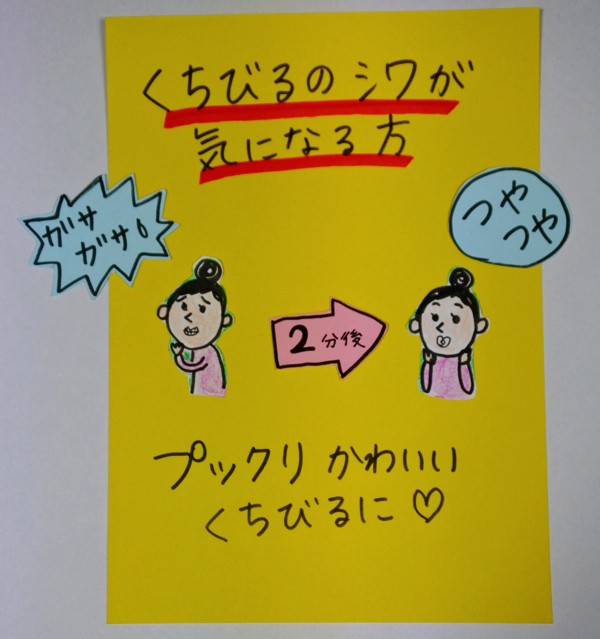 くちびるのシワが
気になる方
ガサ
ガサ!
つや
つや
2分後
プックリ かわいい
くちびるに♡